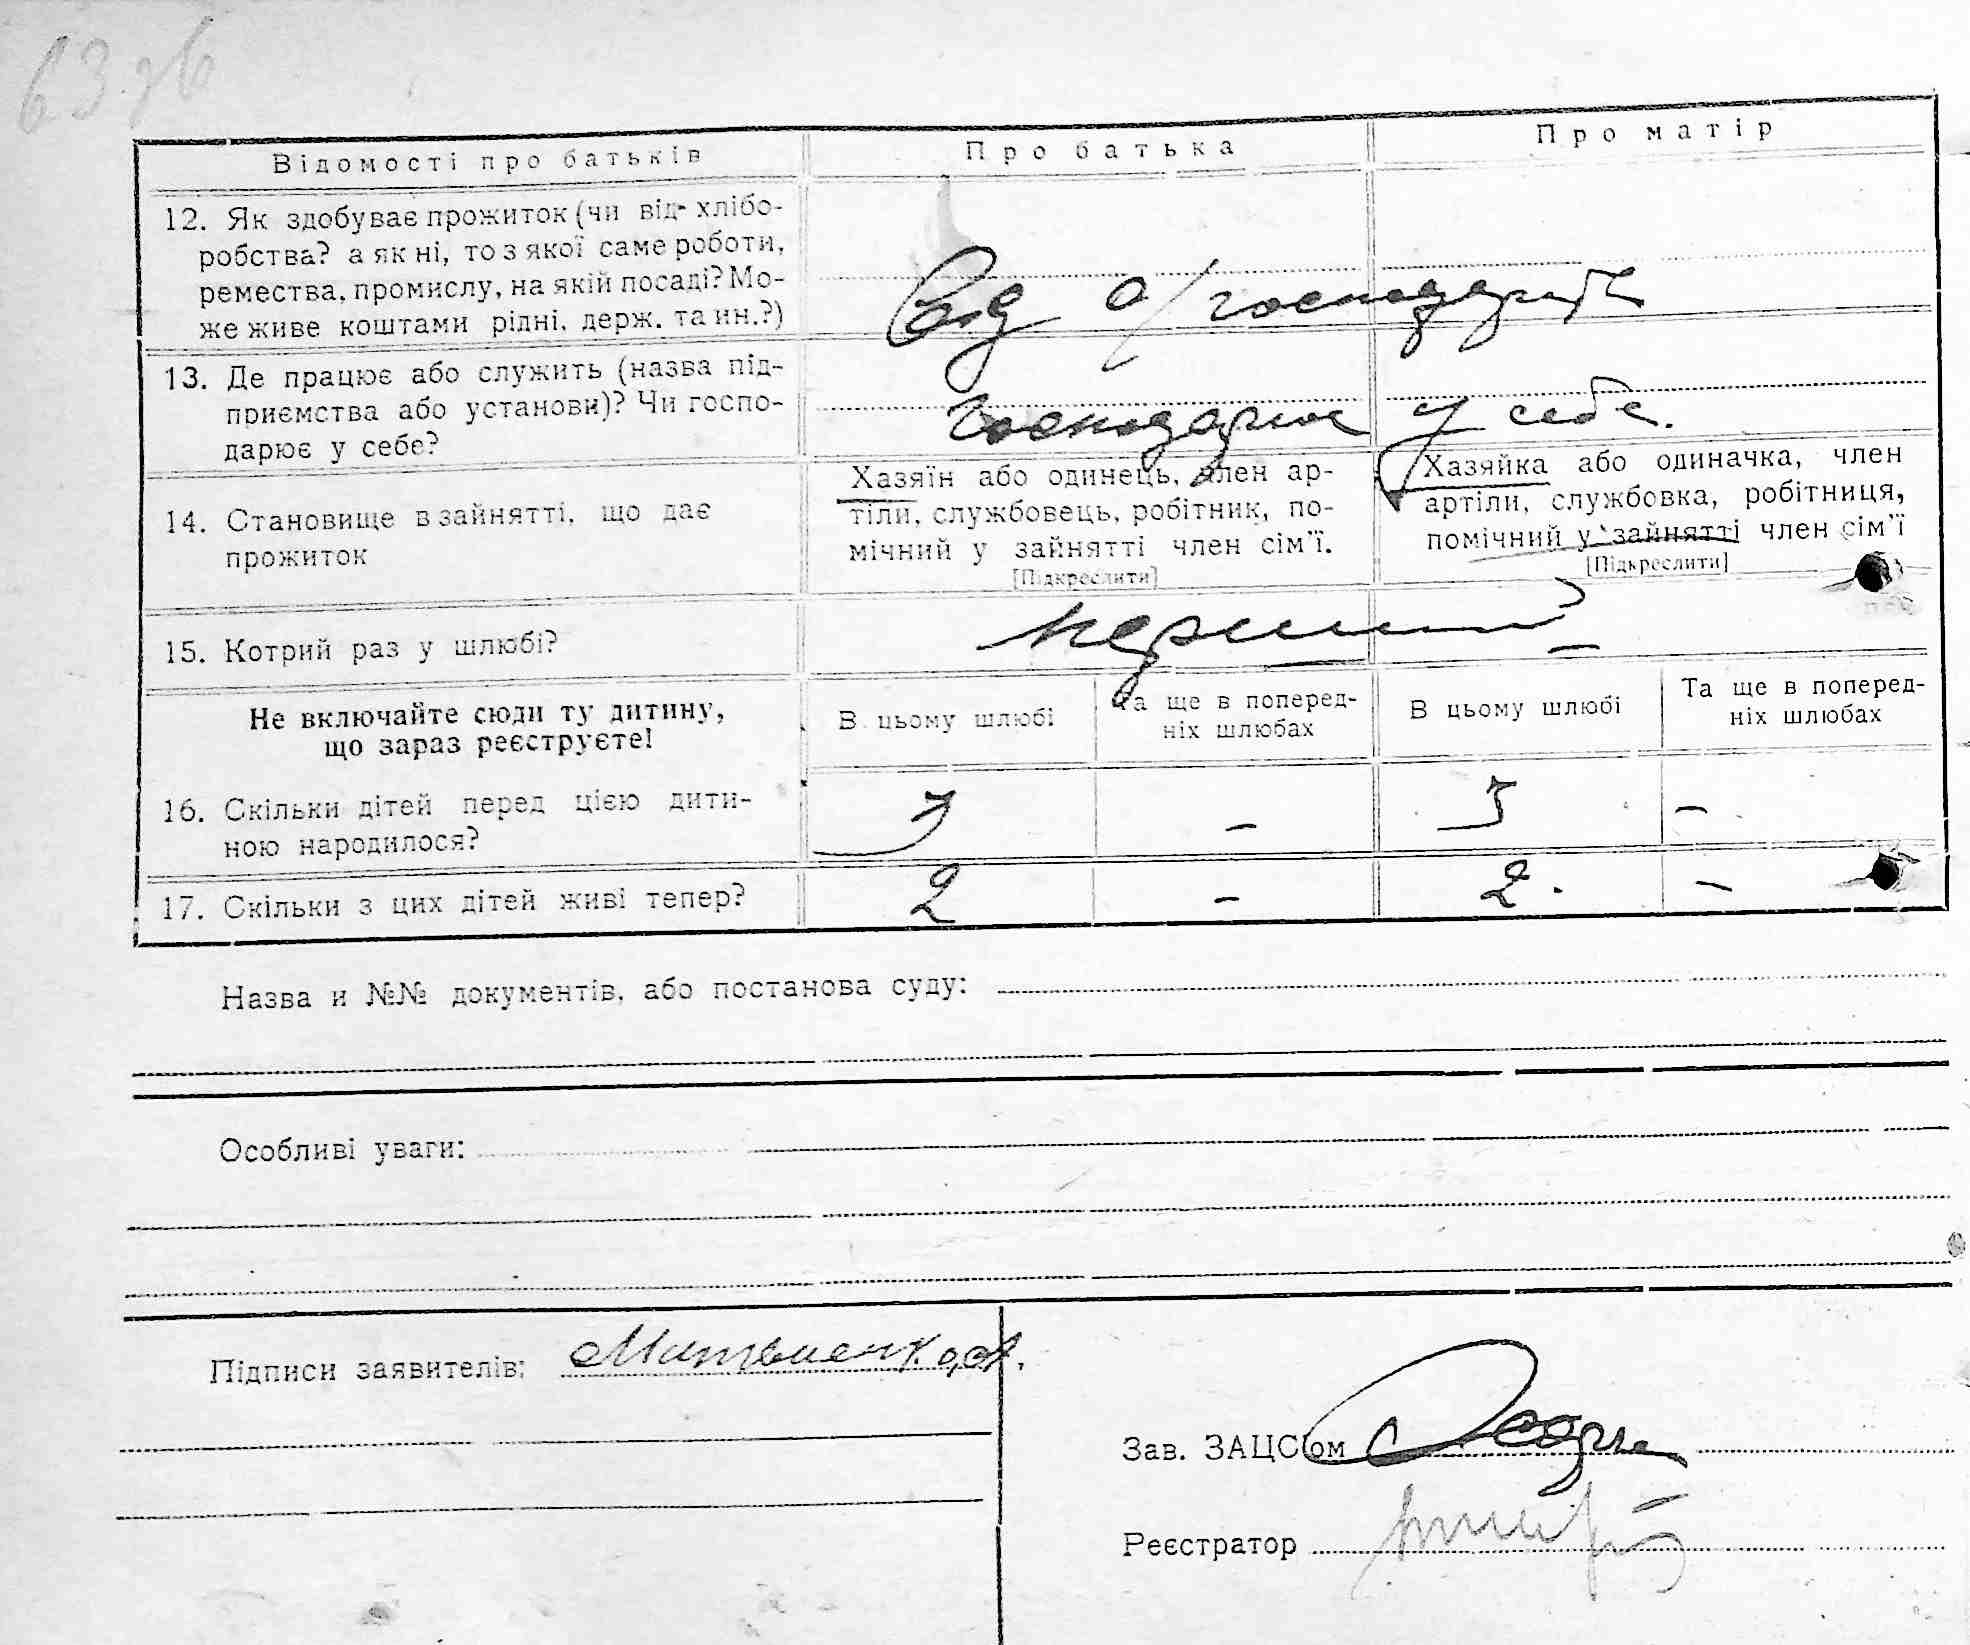 63 зв
Відомості про батьків
Про батька
Про матір
12. Як здобуває прожиток (чи від хлібо-
робства? а як ні, то з якої саме роботи,
ремества, промислу, на якій посаді? Мо-
же живе коштами рідні, держ. та ин.?)
Від с/господарств
13. Де працює або служить (назва під-
приємства або установи)? Чи госпо-
дарює у себе?
Господарює у себе.
14. Становище в зайнятті, що дає
прожиток
Хазяїн або одинець, член ар-
тіли, службовець, робітник, по-
мічний у зайнятті член сім'ї.
[Підкреслити]
Хазяйка або одиначка, член
артіли, службовка, робітниця,
помічний у зайнятті член сім'ї
[Підкреслити]
15. Котрий раз у шлюбі?
перший
Не включайте сюди ту дитину,
що зараз реєструєте!
В цьому шлюбі
Та ще в поперед-
ніх шлюбах
В цьому шлюбі
Та ще в поперед-
ніх шлюбах
16. Скільки дітей перед цією дити-
ною народилося?
5 - 5 -
17. Скільки з цих дітей живі тепер?
2 - 2. -
Назва и №№ документів, або постанова суду:
Особливі уваги:
Підписи заявителів:
Зав. ЗАЦСом
Реєстратор